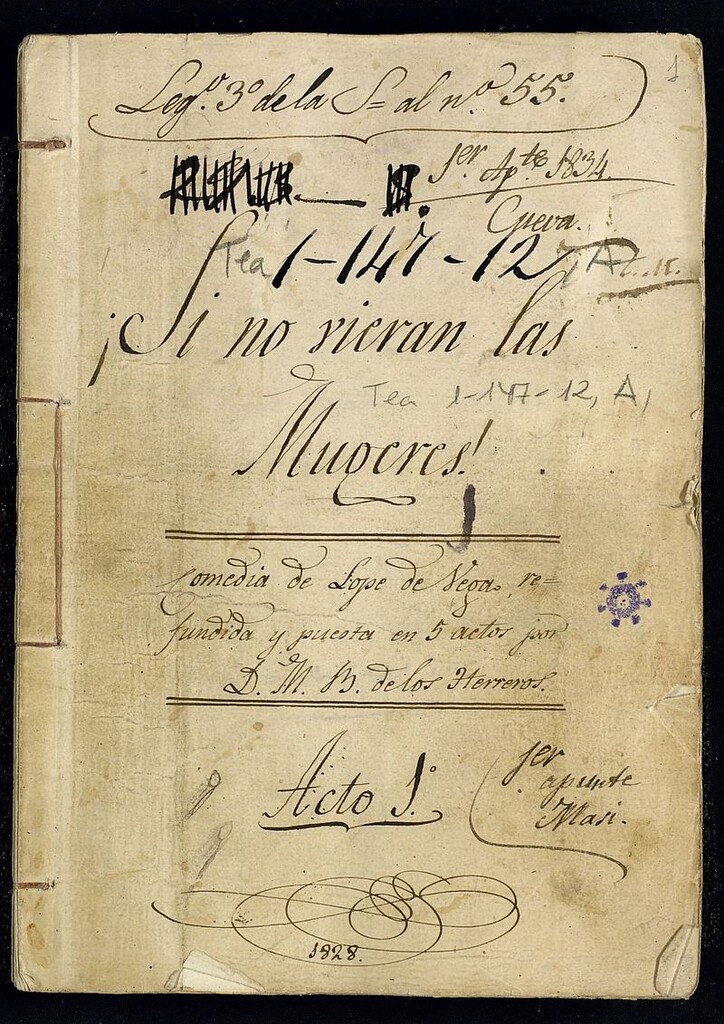 1
Leg.º 3º de la S= al nº 55.
1er Apte 1834.
Cueva.
Tea 1-147-12, A
¡Si no vieran las
Tea 1-147-12, A,
Mugeres!
Comedia de Lope de Vega, re=
fundida y puesta en 5 actos por
D. M. B. de los Herreros.
Acto 1.º
1er
apunte
Masi.
1828.